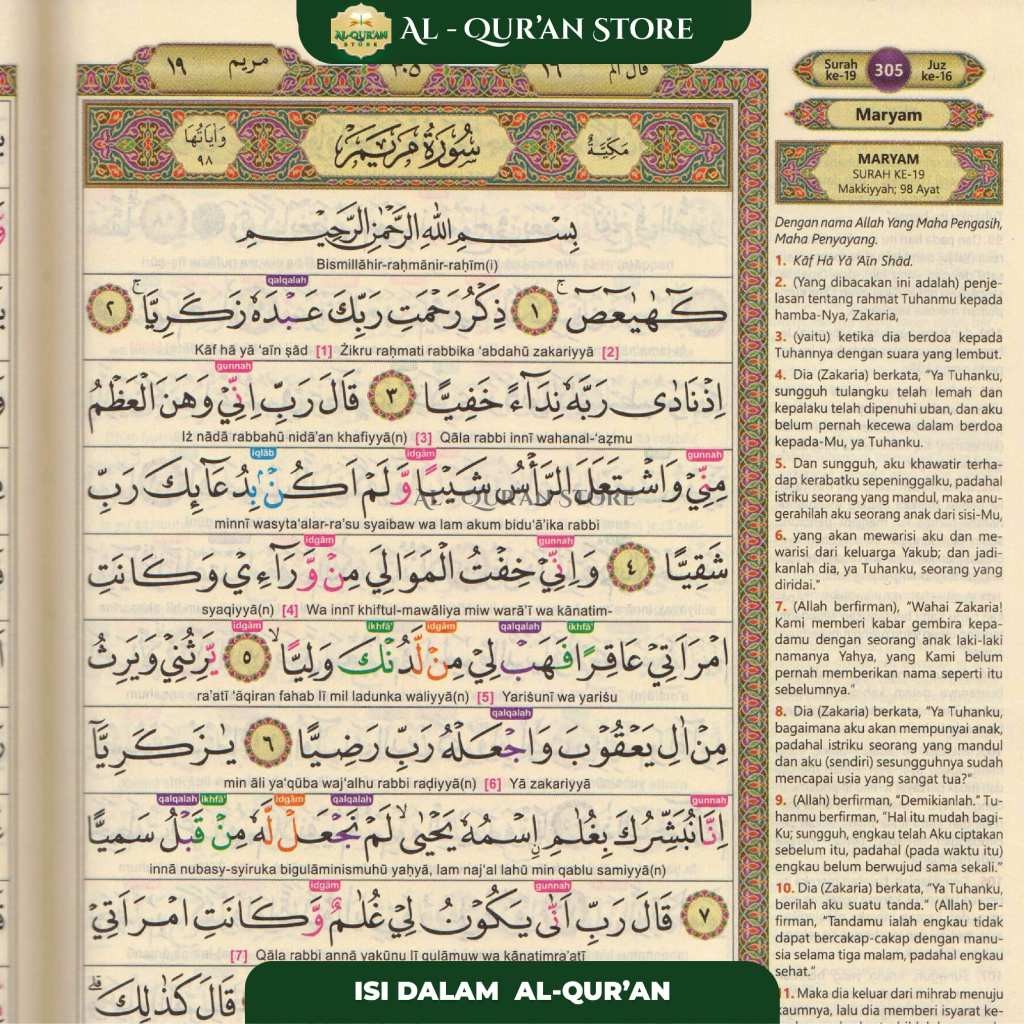 AL-QUR'AN STORE
AL - QUR'AN STORE
مريم ١٩
٣٠٥
قال الم ١٦
مَكِّيَّةٌ
سُوْرَةُ مَرْيَمَ
وَاٰيَاتُهَا ٩٨
بِسْمِ اللّٰهِ الرَّحْمٰنِ الرَّحِيْمِ
Bismillāhir-raḥmānir-raḥīm(i)
qalqalah
كۤهٰيٰعۤصۤ ۚ ١ ذِكْرُ رَحْمَتِ رَبِّكَ عَبْدَهٗ زَكَرِيَّا ۚ ٢
Kāf hā yā ‘aīn ṣād [1] Żikru raḥmati rabbika ‘abdahū zakariyyā [2]
gunnah
اِذْ نَادٰى رَبَّهٗ نِدَاۤءً خَفِيًّا ٣ قَالَ رَبِّ اِنِّيْ وَهَنَ الْعَظْمُ
Iż nādā rabbahū nidā'an khafiyyā(n) [3] Qāla rabbi innī wahanal-‘aẓmu
iqlāb idgām gunnah
مِنِّيْ وَاشْتَعَلَ الرَّأْسُ شَيْبًا وَّلَمْ اَكُنْۢ بِدُعَاۤىِٕكَ رَبِّ
AL-QUR'AN STORE
minnī wasyta‘alar-ra'su syaibaw wa lam akum bidu‘ā'ika rabbi
idgām gunnah
شَقِيًّا ٤ وَاِنِّيْ خِفْتُ الْمَوَالِيَ مِنْ وَّرَاۤءِيْ وَكَانَتِ
syaqiyyā(n) [4] Wa innī khiftul-mawāliya miw warā'ī wa kānatim-
idgām ikhfā' idgām qalqalah ikhfā'
امْرَاَتِيْ عَاقِرًا فَهَبْ لِيْ مِنْ لَّدُنْكَ وَلِيًّا ۙ ٥ يَّرِثُنِيْ وَيَرِثُ
ra'atī ‘āqiran fahab lī mil ladunka waliyyā(n) [5] Yariṡunī wa yariṡu
qalqalah
مِنْ اٰلِ يَعْقُوْبَ وَاجْعَلْهُ رَبِّ رَضِيًّا ٦ يٰزَكَرِيَّآ
min āli ya‘qūba waj‘alhu rabbi raḍiyyā(n) [6] Yā zakariyyā
qalqalah ikhfā' idgām qalqalah gunnah
اِنَّا نُبَشِّرُكَ بِغُلٰمِ ِۨاسْمُهٗ يَحْيٰى ۙ لَمْ نَجْعَلْ لَّهٗ مِنْ قَبْلُ سَمِيًّا
innā nubasy-syiruka bigulāminismuhū yaḥyā, lam naj‘al lahū min qablu samiyyā(n)
idgām gunnah
٧ قَالَ رَبِّ اَنّٰى يَكُوْنُ لِيْ غُلٰمٌ وَّكَانَتِ امْرَاَتِيْ
[7] Qāla rabbi annā yakūnu lī gulāmuw wa kānatimra'atī
قَالَ كَذٰلِكَ ۚ
Surah ke-19 305 Juz ke-16
Maryam
MARYAM
SURAH KE-19
Makkiyyah; 98 Ayat
Dengan nama Allah Yang Maha Pengasih,
Maha Penyayang.
1. Kāf Hā Yā ‘Aīn Shād.
2. (Yang dibacakan ini adalah) penje-
lasan tentang rahmat Tuhanmu kepada
hamba-Nya, Zakaria,
3. (yaitu) ketika dia berdoa kepada
Tuhannya dengan suara yang lembut.
4. Dia (Zakaria) berkata, "Ya Tuhanku,
sungguh tulangku telah lemah dan
kepalaku telah dipenuhi uban, dan aku
belum pernah kecewa dalam berdoa
kepada-Mu, ya Tuhanku.
5. Dan sungguh, aku khawatir terha-
dap kerabatku sepeninggalku, padahal
istriku seorang yang mandul, maka anu-
gerahilah aku seorang anak dari sisi-Mu,
6. yang akan mewarisi aku dan me-
warisi dari keluarga Yakub; dan jadi-
kanlah dia, ya Tuhanku, seorang yang
diridai."
7. (Allah berfirman), "Wahai Zakaria!
Kami memberi kabar gembira kepa-
damu dengan seorang anak laki-laki
namanya Yahya, yang Kami belum
pernah memberikan nama seperti itu
sebelumnya."
8. Dia (Zakaria) berkata, "Ya Tuhanku,
bagaimana aku akan mempunyai anak,
padahal istriku seorang yang mandul
dan aku (sendiri) sesungguhnya sudah
mencapai usia yang sangat tua?"
9. (Allah) berfirman, "Demikianlah." Tu-
hanmu berfirman, "Hal itu mudah bagi-
Ku; sungguh, engkau telah Aku ciptakan
sebelum itu, padahal (pada waktu itu)
engkau belum berwujud sama sekali."
10. Dia (Zakaria) berkata, "Ya Tuhanku,
berilah aku suatu tanda." (Allah) ber-
firman, "Tandamu ialah engkau tidak
dapat bercakap-cakap dengan manu-
sia selama tiga malam, padahal engkau
sehat."
11. Maka dia keluar dari mihrab menuju
kaumnya, lalu dia memberi isyarat ke-
ISI DALAM AL-QUR'AN